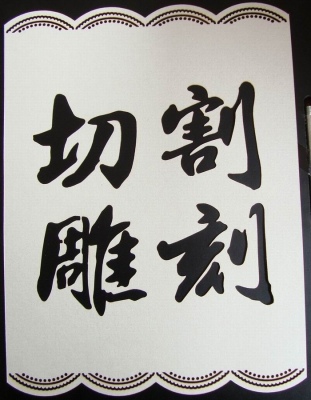 切割
雕刻